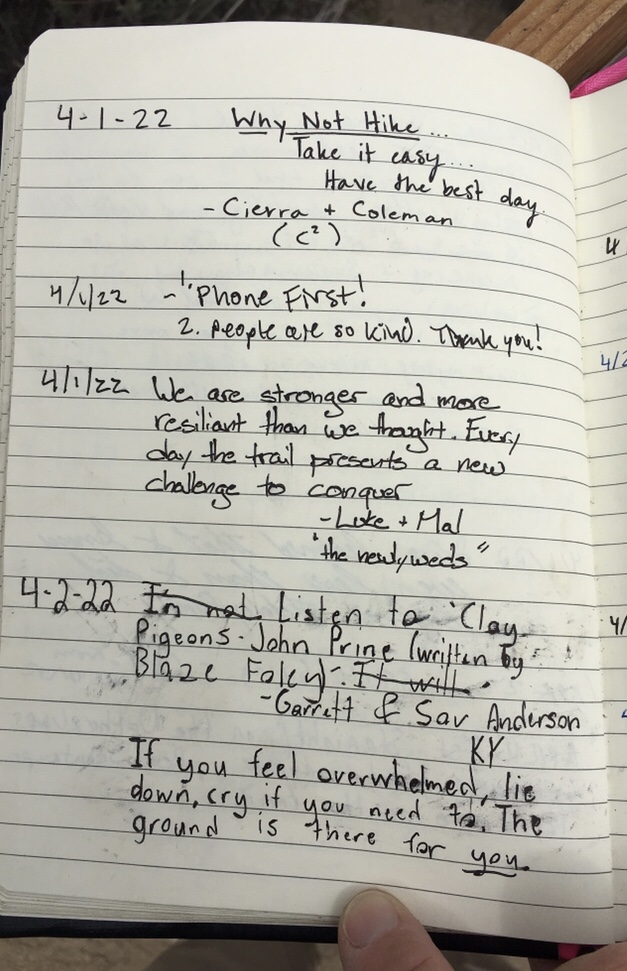 4-1-22 Why Not Hike...
Take it easy...
Have the best day.
- Cierra + Coleman
(C²)
4/1/22 - 1. "Phone First!
2. People are so kind. Thank you!
4/1/22 We are stronger and more
resiliant than we thought. Every
day the trail presents a new
challenge to conquer
- Luke + Mal
"the newlyweds"
4-2-22 In not Listen to "Clay
Pigeons - John Prine (written by
Blaze Foley)". It will.
- Garrett & Sav Anderson
KY
If you feel overwhelmed, lie
down, cry if you need to. The
ground is there for you.
4
4/2
4/